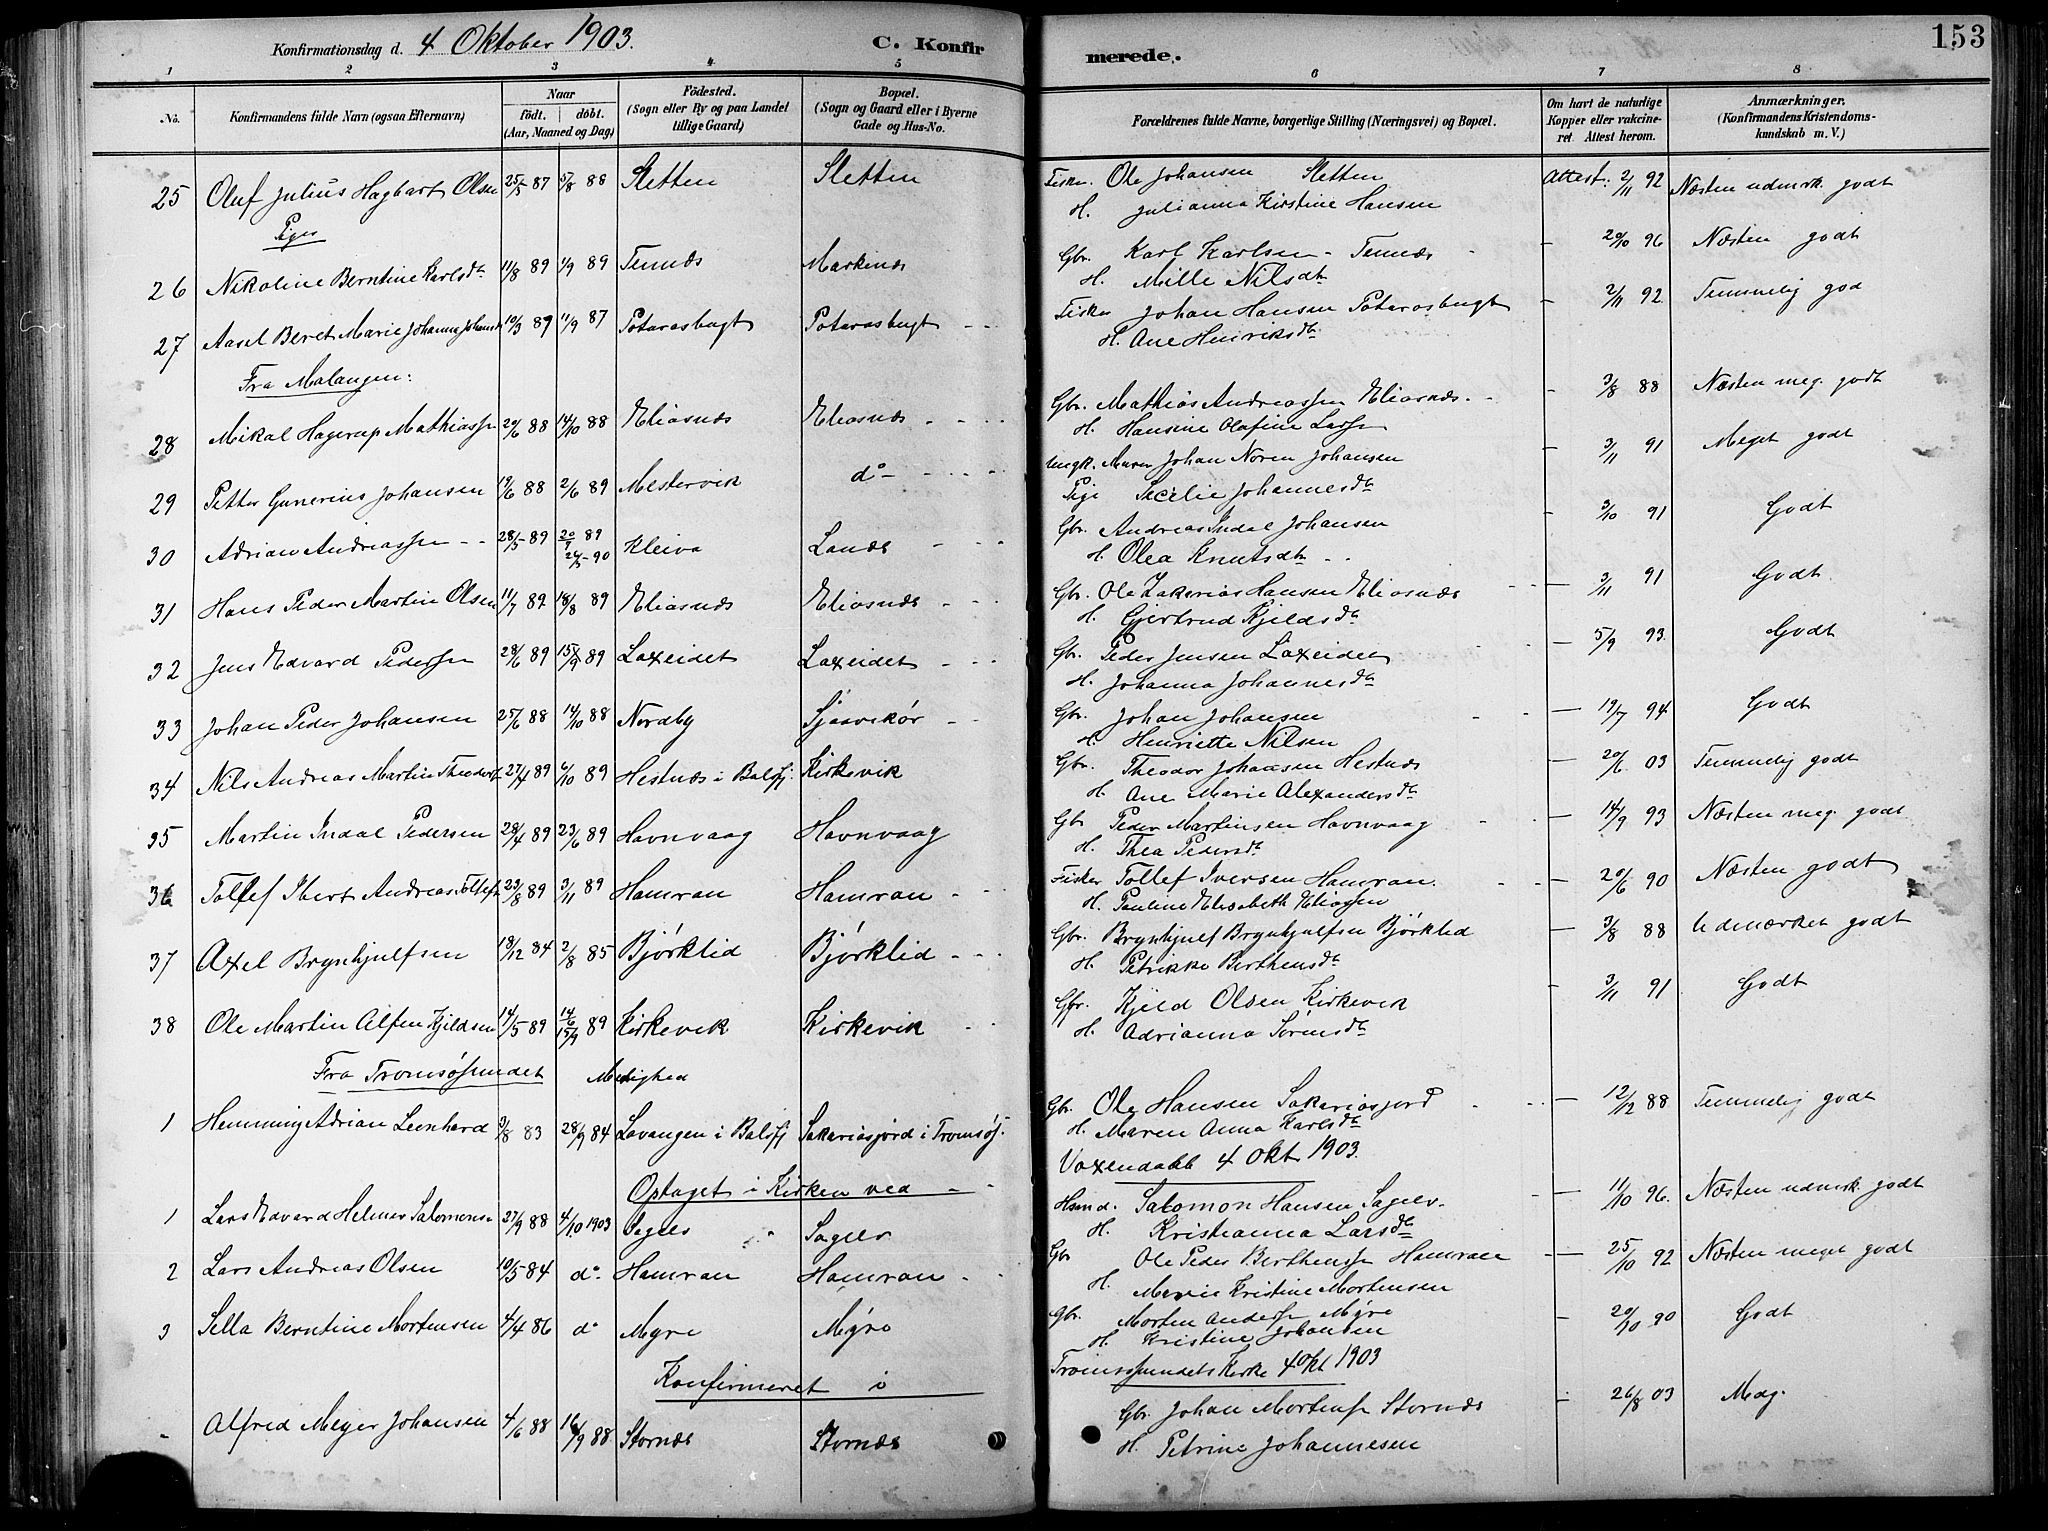 Konfirmationsdag d. 4 Oktober 1903. C. Konfirmerede. 153
1 2 3 4 5 6 7 8
No. Konfirmandens fulde Navn (ogsaa Efternavn) Naar födt. döbt. (Aar, Maaned og Dag) Födested. (Sogn eller By og paa Landet tillige Gaard) Bopæl. (Sogn og Gaard eller i Byerne Gade og Hus-No. Forældrenes fulde Navne, borgerlige Stilling (Næringsvei) og Bopæl. Om havt de naturlige Kopper eller vakcineret Attest herom. Anmærkninger. (Konfirmandens Kristendomskundskab m. V.)
25 Oluf Julius Hagbart Olsen 25/5 87 5/8 88 Sletten Sletten Fisker. Ole Johansen Sletten Attest: 2/11 92 Næsten udmrk. godt
H. Julianna Kirstine Hansen
Piger
26 Nikoline Berntine Karlsdt 11/8 89 1/9 89 Tennæs Markenæs Gbr. Karl Karlsen - Tennæs - 20/10 96 Næsten godt
H. Mille Nilsdt
27 Aasel Beret Marie Johanna Johansd 10/3 89 11/9 87 Potarasbugt Potarasbugt Fisker Johan Hansen Potarasbugt - 2/11 92 Temmelig god
H. Ane Henriksdt
Fra Malangen:
28 Mikal Hagerup Mathiassen 20/6 88 14/10 88 Eliasnæs Eliasnæs Gbr. Mathias Andreassen Eliasnæs. - 3/8 88 Næsten meg. godt
H. Hansine Olafine Larsen
29 Petter Gunerius Johansen 19/6 88 2/6 89 Mestervik do Ungk. Johan Noren Johansen - 3/11 91 Meget godt
Pige Secelie Johannesdt
30 Adrian Andreassen 28/5 89 20/9 89 Kleiva Lanæs Gbr. Andreas Indal Johansen - 3/10 91 Godt
24/5 90 H. Olea Knutsdt
31 Hans Peder Martin Olsen 11/7 89 18/8 89 Eliasnæs Eliasnæs Gbr. Ole Zakarias Hansen Eliasnæs - 3/11 91 Godt
H. Gjertrud Kjeldsdt
32 Jens Edvard Pedersen 28/6 89 15/9 89 Laxeidet Laxeidet Gbr. Peder Jensen Laxeidet - 5/9 93. Godt
H. Johanna Johannesdt
33 Johan Peder Johansen 25/6 88 14/10 88 Nordby Sjaavikør Gbr. Johan Johansen - 19/7 94 Godt
H. Henriette Nilsen
34 Nils Andreas Martin Theodors 27/4 89 6/10 89 Hestnæs i Balsfj. Kirkevik Gbr. Theodor Johansen Hestnæs - 20/6 03 Temmelig godt
H. Ane Marie Alexandersdt
35 Martin Indal Pedersen 28/4 89 23/6 89 Havnvaag Havnvaag Gbr Peder Martinsen Havnvaag - 14/9 93 Næsten meg. godt
H. Thea Pedersdt
36 Tollef Ibert Andreas Tollefs 23/8 89 3/11 89 Hamran Hamran Fisker Tollef Iversen Hamran. - 20/6 90 Næsten godt
H. Pauline Elisabeth Eliasen
37 Axel Brynhjulfsen 18/12 84 2/8 85 Bjørklid Bjørklid Gbr. Brynhjulf Brynhjulfsen Bjørklid - 3/8 88 Udmærket godt
H. Petrikke Berthensdt
38 Ole Martin Alfen Kjeldsen 14/5 89 14/6 89 Kirkevik Kirkevik Gbr. Kjeld Olsen Kirkevik - 3/11 91 Godt
15/9 H. Adrianna Sørensdt
Fra Tromsøsundet Menighed
1 Hemming Adrian Leonhard 3/8 83 28/9 84 Lavangen i Balsfj Sakariasjord i Tromsøs. Gbr. Ole Hansen Sakariasjord - 12/12 88 Temmelig godt
H. Maren Anna Karlsdt
Optaget i Kirken ved Voxendaab 4 Okt 1903.
1 Lars Edvard Helmer Salomons 27/9 88 4/10 1903 Sagelv Sagelv Hsmd. Salomon Hansen Sagelv. - 11/10 96. Næsten udmrk. godt
H. Kristianna Larsdt
2 Lars Andreas Olsen 10/5 84 do. Hamran Hamran Gbr Ole Peder Berthensen Hamran - 25/10 92 Næsten meget godt
H. Marie Kristine Mortensen
3 Sella Berntine Mortensen 4/4 86 do Myre Myre Gbr. Morten Andersen Myre - 20/10 90 Godt
H. Kristine Johansen
Konfirmeret i Tromsøsundets Kirke 4 Okt 1903
- Alfred Meyer Johansen 4/6 88 16/9 88 Stornæs Stornæs Gbr. Johan Mortensen Stornæs - 26/8 03 Mdg.
H. Petrine Johannesen